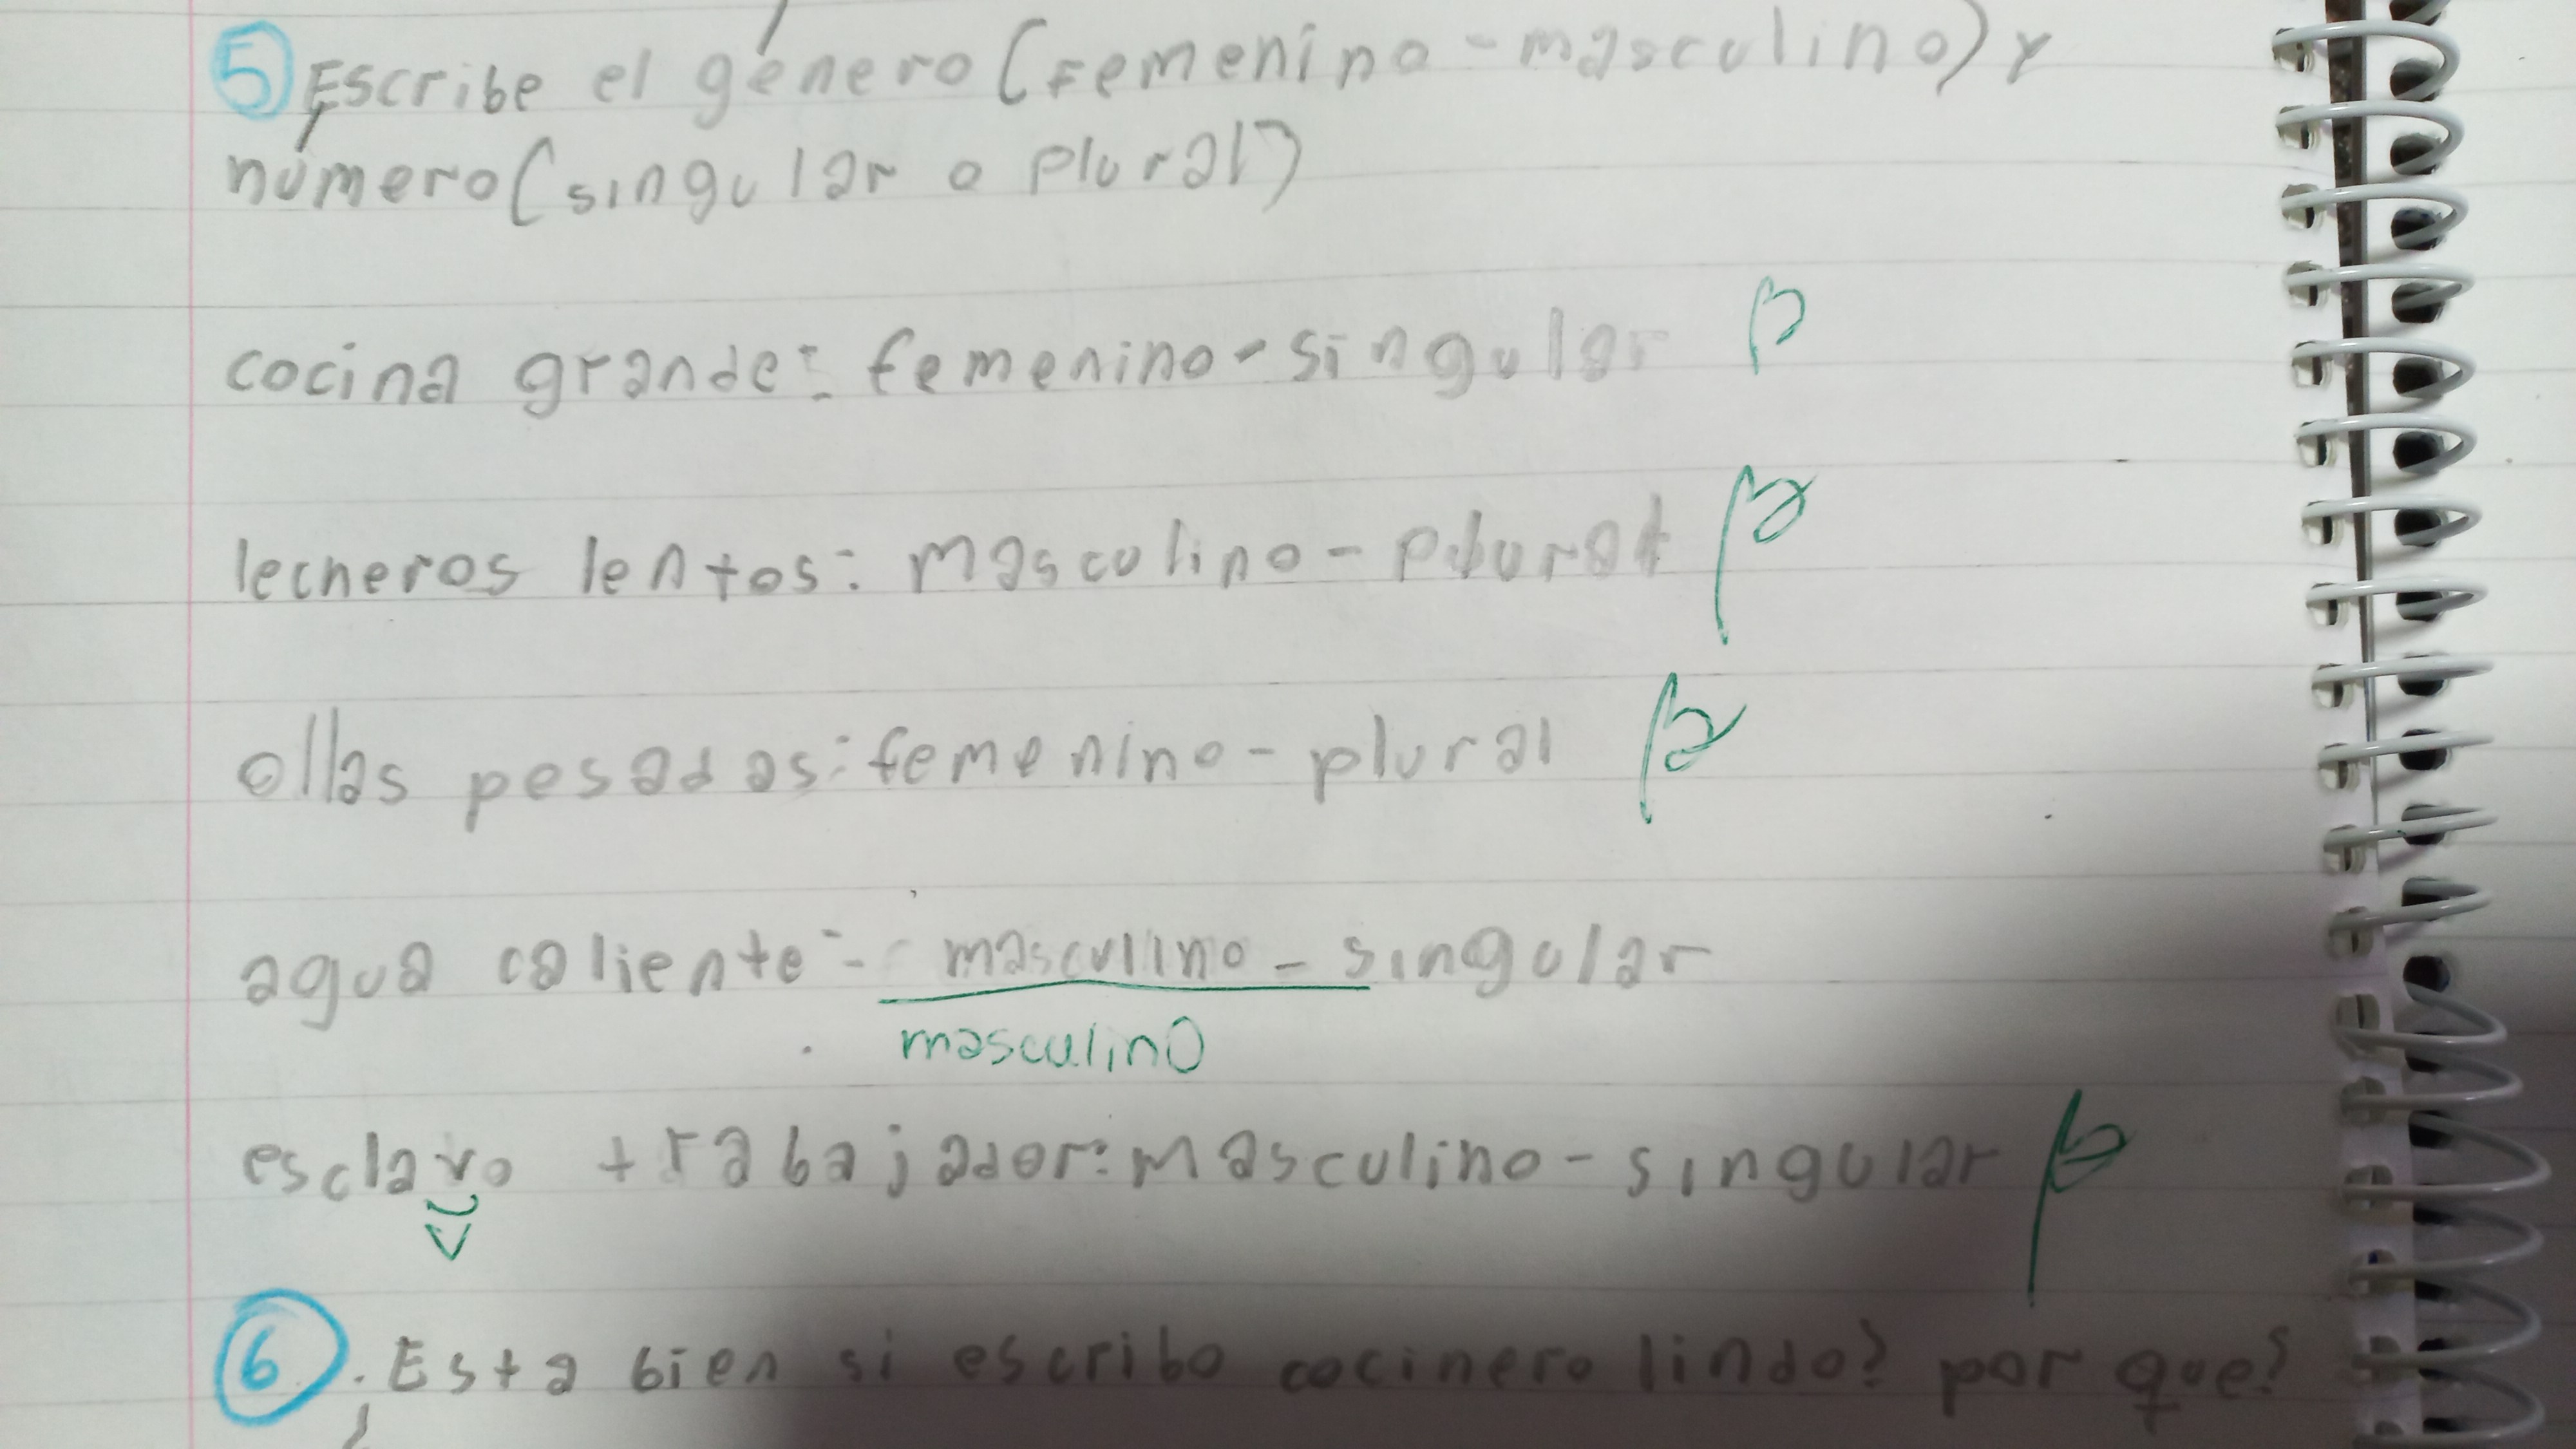 5 Escribe el género (Femenino - masculino) y
número (singular o plural)
cocina grande: femenino - singular
lecheros lentos: masculino - plural
ollas pesadas: femenino - plural
agua caliente: masculino - singular
masculino
esclavo trabajador: masculino - singular
v
6 ¿Esta bien si escribo cocinero lindo? por que?